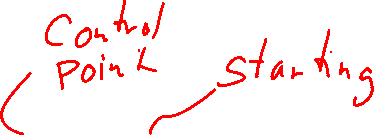 Control
Point
Starting